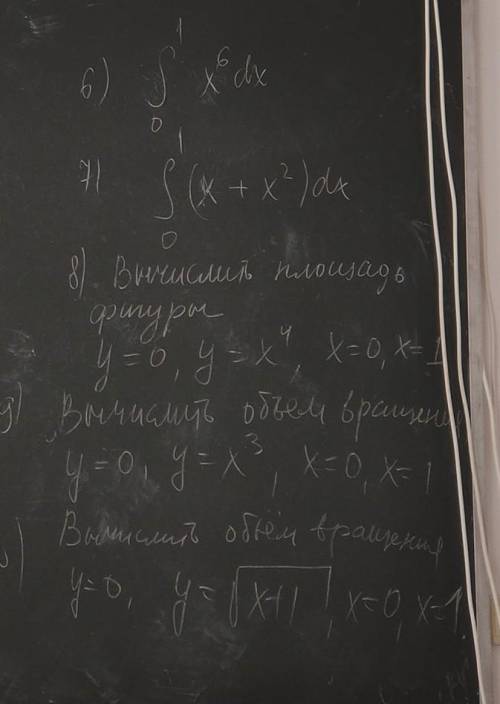 6) ∫₀¹ x⁶ dx
7) ∫₀¹ (x + x²) dx
8) Вычислить площадь
фигуры
y=0, y=x⁴, x=0, x=1
9) Вычислить объем вращения
y=0, y=x³, x=0, x=1
Вычислить объём вращения
y=0, y=√(x+1), x=0, x=1